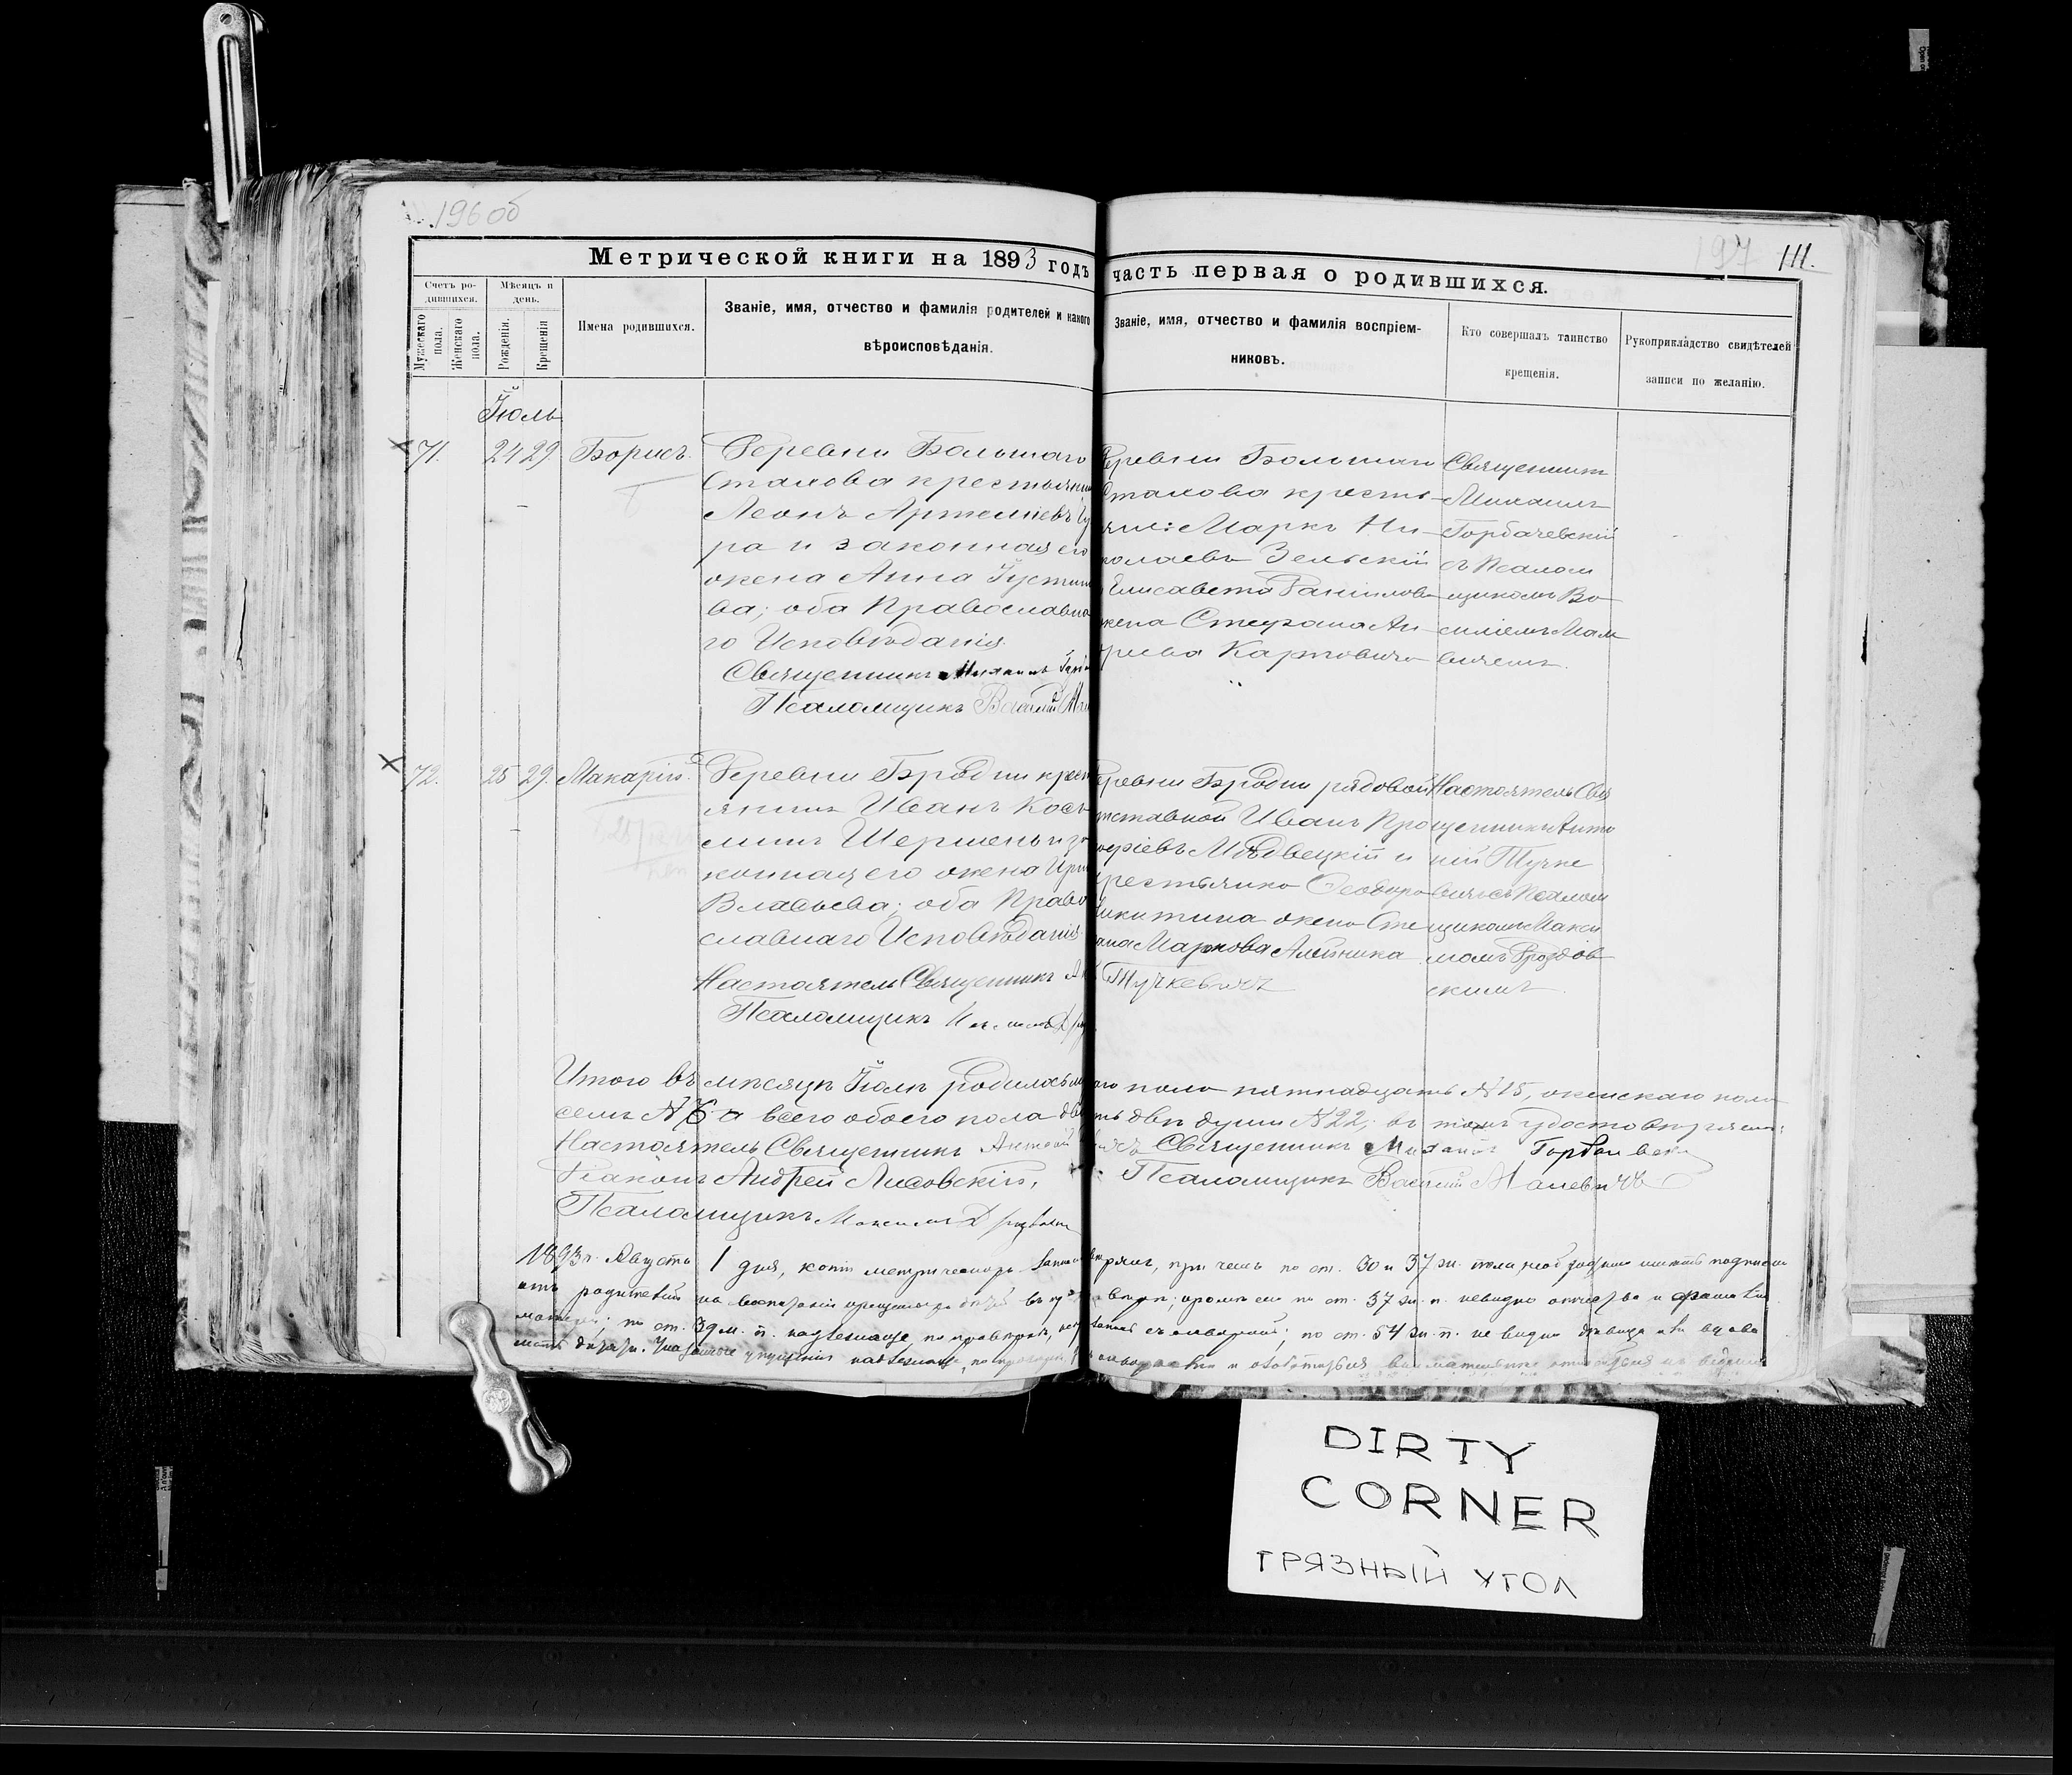 196 об
197 111.
Метрической книги на 1893 годъ часть первая о родившихся.
Счетъ родившихся.
Мужескаго пола.
Женскаго пола.
Мѣсяцъ и день.
Рожденія.
Крещенія
Имена родившихся.
Званіе, имя, отчество и фамилія родителей и какого
вѣроисповѣданія.
Званіе, имя, отчество и фамилія воспріем-
никовъ.
Кто совершалъ таинство
крещенія.
Рукоприкладство свидѣтелей
записи по желанію.
Іюль
71. 24 29 Борисъ.
Деревни Большаго
Стахова крестьянин
Леонъ Артемиевъ
ра и законная его
жена Анна Іустин
ва; оба Православно
го Исповѣданія.
Священникъ Михаилъ
Псаломщикъ Василій
Деревни Большаго
Стахова кресть-
яне: Маркъ Ни-
колаевъ Зельскій
Елисавета Даніилова
жена Стефана Ан-
Карповича
Священник
Михаилъ
Горбачевскій
съ Псалом
щикомъ Ва-
силіемъ Мал
евичемъ.
72. 25 29. Макарій.
Деревни Бродни крест
янинъ Иванъ Косъ
минъ Шершень и за
конная его жена Ири
Власьева; оба Право
славнаго Исповѣданія
Настоятель Священникъ
Псаломщикъ
деревни Бродни рядовой
отставной Иванъ Про
Мѣдвецкій и
крестьянка Ѳеодора
Никитина жена Сте
Маркова Алейника
Тучкевичъ
Настоятель Свя
щенникъ Анто
ній Тучке
вичъ съ Псалом
щикомъ Макси
момъ Дроздов
скимъ.
Итого въ мѣсяцѣ Іюлѣ родилось мужескаго пола пятнадцать N 15, женскаго пола
семь N 7 а всего обоего пола двадцать двѣ души N 22; въ томъ удостовѣряемъ:
Настоятель Священникъ Антоній Священникъ Михаилъ Горбачевскій
Діаконъ Андрей Лисовскій, Псаломщикъ Василій Малевичъ
Псаломщикъ Максимъ Дроздовскій
1893 г. Августа 1 дня, копіи метрическихъ при чемъ по ст. 30 и 37 ж. пола подписи
родителей въ кромѣ сего по ст. 37 ж. п. невидно отчества и фамиліи
матери; по ст. 39 м. п. надлежаще по ст. 54 ж. п. не видно дѣвица или вдова
мать упущенія надлежаще
DIRTY
CORNER
ГРЯЗНЫЙ УГОЛ